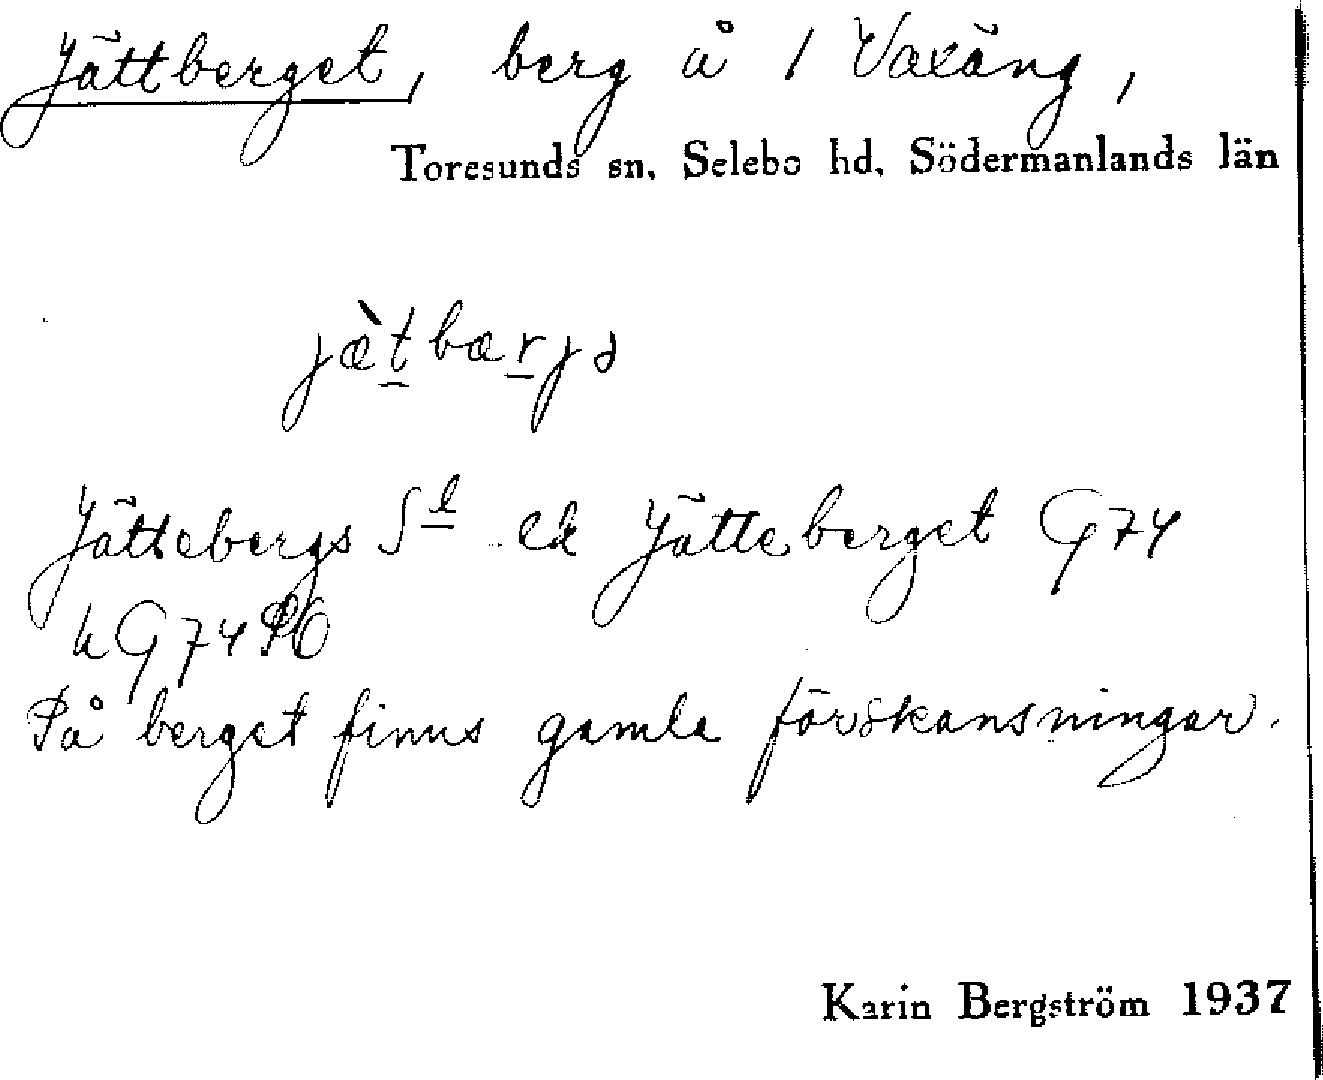 Jättberget, berg å 1 Vaxäng,
Toresunds sn, Selebo hd, Södermanlands län
jæ̀t̲bær̲jə
Jättebergs Sl ek Jätteberget G74
kG74
På berget finns gamla förskansningar.
Karin Bergström 1937